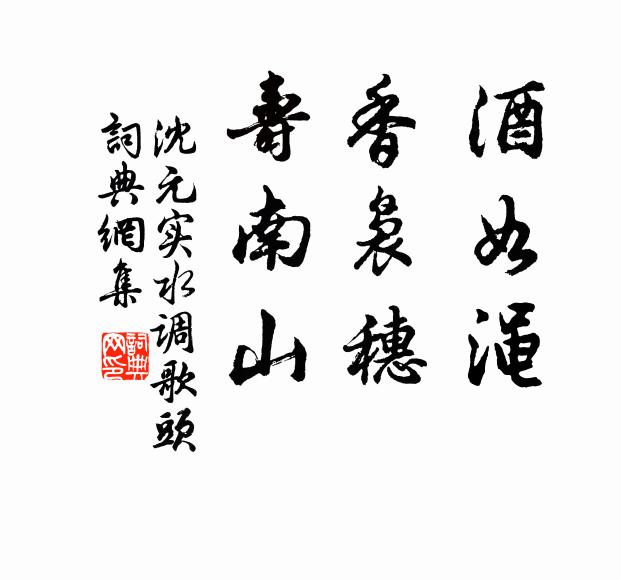 酒如渑
香袅穗
壽南山
沈元实水调歌頭
詞典網集
詞典网印